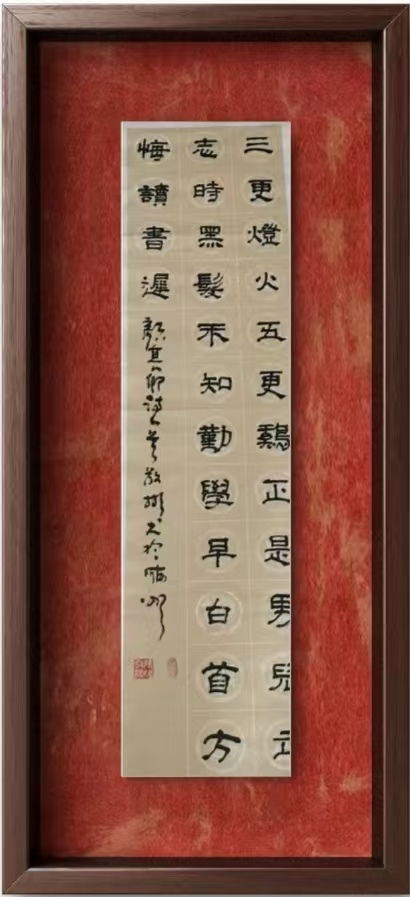 三更燈火五更鷄正是男兒立
志時黑髮不知勤學早白首方
悔讀書遲
顏真卿詩